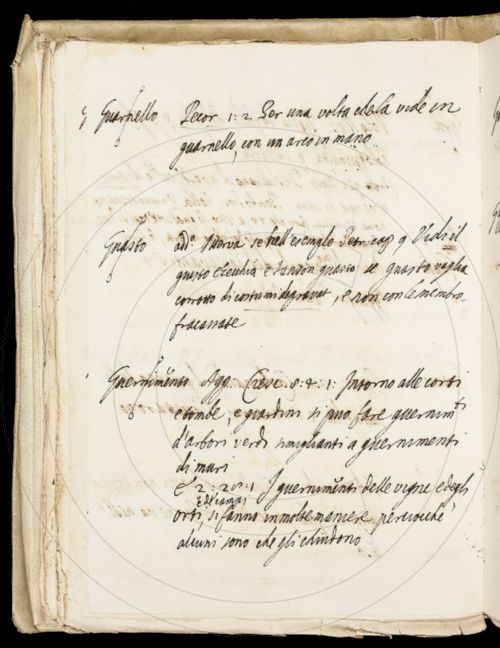 Guarnello Pecor 1: 2. Per una volta che la vide in
guarnello, con un arco in mano
Guasto add.º Avverta se nell'esempio Petr: cap 9 Vidi il
giusto Ezechia e Sanson guasto, se guasto vaglia
corrotto di costumi depravat, e non con le membra
fracassate
Guernimento Ago: Cresc. 8: 4: 1: Intorno alle corti
e tombe, e giardini si può fare guernimti
d'arbori verdi simiglianti a guernimenti
di muri
E 2: 28: 1 I guernimenti delle vigne e degli
orti, e de campi si fanno in molte maniere, perciochè
alcuni sono che gli chiudono